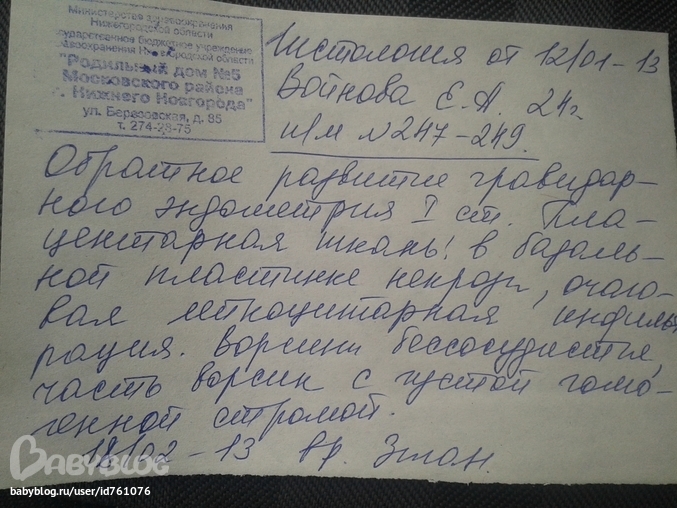 Министерство здравоохранения
Нижегородской области
государственное бюджетное учреждение
здравоохранения Нижегородской области
"Родильный дом №5
Московского района
г. Нижнего Новгорода"
ул. Березовская, д. 85
т. 274-28-75
Гистология от 12/01-13
Войнова Е.А. 24г.
и/м №247-249.
Обратное развитие гравидар-
ного эндометрия I ст. Пла-
центарная ткань! в базаль-
ной пластинке некрозы, очаго-
вая лейкоцитарная инфильт
рация. ворсины бессосудистые,
часть ворсин с густой гомо-
генной стромой.
18/02-13 вр.
BABYBLOG
babyblog.ru/user/id761076